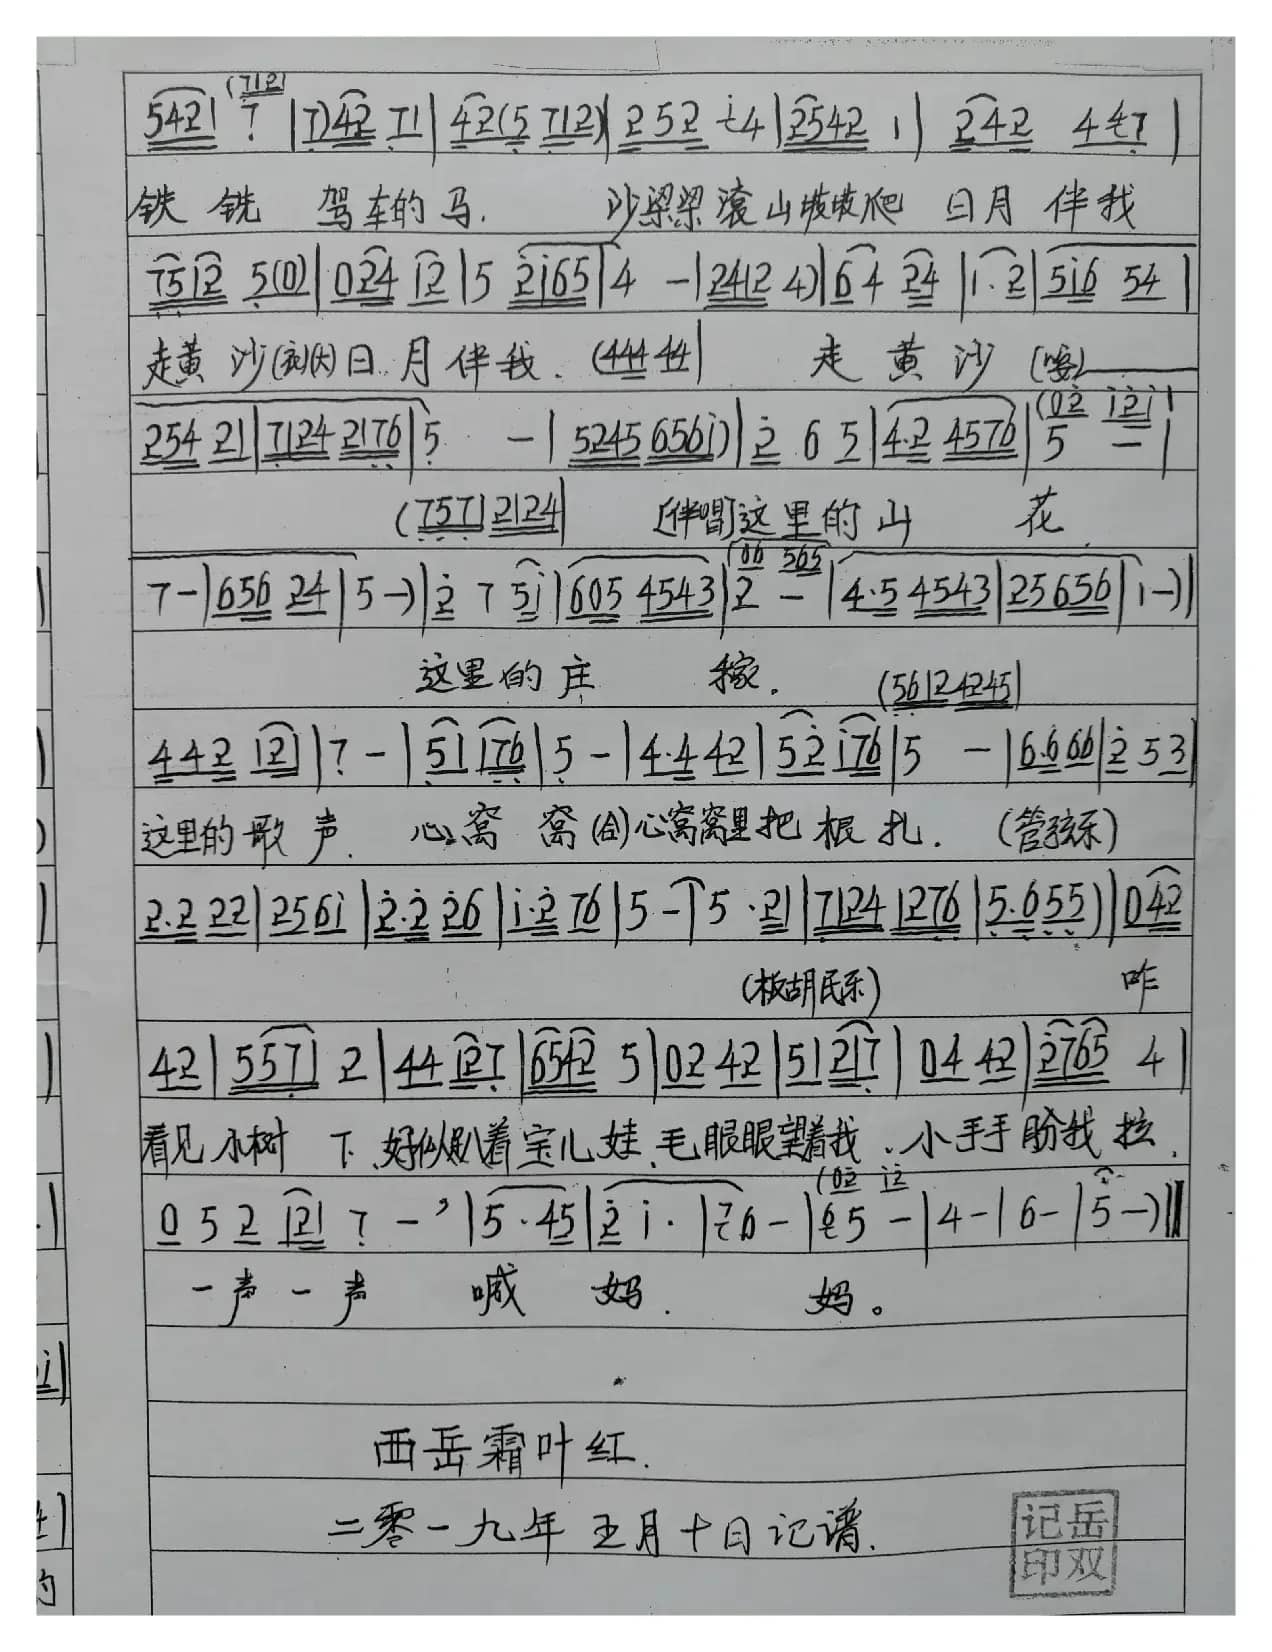 5421 7 (712) | 7)42 71 | 42(5 712) | 252 i4 | 2542 1 | 242 447 |
铁铣 驾车的马. 沙梁梁滚山坡坡爬 日月伴我
7512 5(0) | 024 12 | 5 2165 | 4 - | 2412 4) | 64 24 | 1·2 | 5i6 54 |
走黄沙 日月伴我. (444 44| 走黄沙
254 21 | 7124 2176 | 5 - | 5245 656i) | 2 6 5 | 4·2 4576 | 5 - | (02 i2i|
(7571 2124| [伴唱]这里的山 花
7 - | 656 24 | 5 -) | 2 7 5i | 605 4543 | 2 - (06 565 | 4·5 4543 | 25656 | i -) |
这里的庄 稼. (5612 4245|
442 121 | 7 - | 51 176 | 5 - | 4·4 42 | 52 i76 | 5 - | 6·6 66 | 2 53 |
这里的歌声. 心窝窝(合)心窝窝里把根扎. (管弦乐)
2·2 22 | 256i | 2·2 26 | i·2 76 | 5 - | 5·21 | 7124 1276 | 5·655) | 042
(板胡民乐) 咋
42 | 5571 2 | 44 127 | 6542 5 | 02 42 | 51 217 | 04 42 | 2765 4 |
看见小树下.好似趴着宝儿娃.毛眼眼望着我.小手手盼我拉.
0 5 2 121 7 - ’ | 5·45 | 2 i· | 76 - | 65 - (02 i2 | 4 - | 6 - | 5 -) ‖
一声一声 喊妈. 妈。
西岳霜叶红.
二零一九年五月十日记谱.
记岳
印双